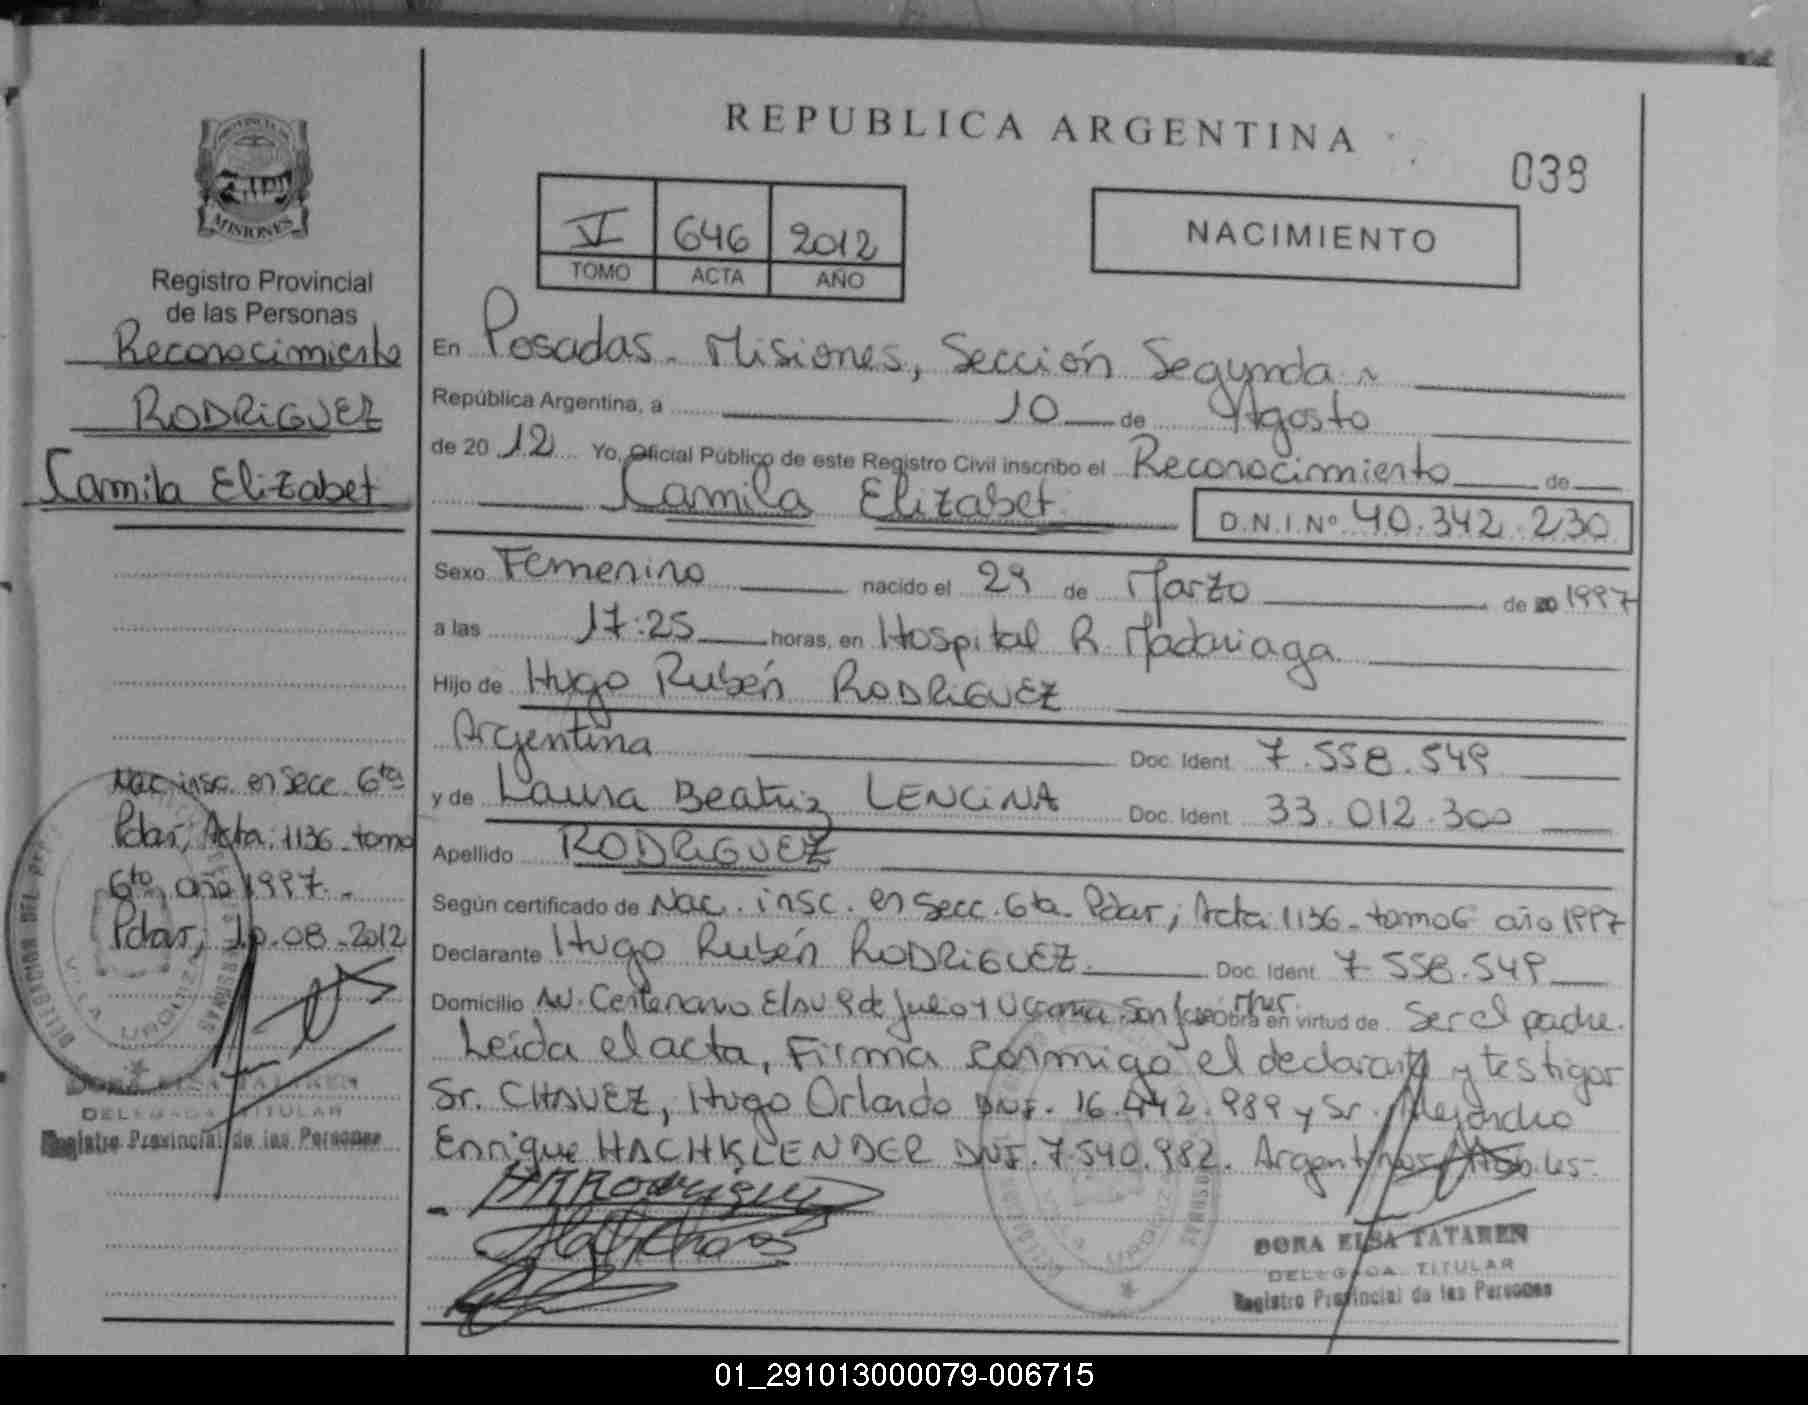 REPUBLICA ARGENTINA
038
VI 646 2012
TOMO ACTA AÑO
NACIMIENTO
PROVINCIA DE
MISIONES
Registro Provincial
de las Personas
Reconocimiento
RODRIGUEZ
Camila Elizabet
Nac. insc. en Secc. 6ta
Pdas, Acta: 1136 - tomo
6to, año 1997.-
Pdas, 10.08.2012
DORA ELSA TATAREN
DELEGADA TITULAR
Registro Provincial de las Personas
En Posadas - Misiones, Sección Segunda
República Argentina, a 10 de Agosto
de 20 12 Yo, Oficial Público de este Registro Civil inscribo el Reconocimiento de
Camila Elizabet D.N.I.Nº 40.342.230
Sexo Femenino nacido el 29 de Marzo de 20 1997
a las 17:25 horas, en Hospital R. Madariaga
Hijo de Hugo Rubén RODRIGUEZ
Argentina Doc. Ident. 7.558.549
y de Laura Beatriz LENCINA Doc. Ident. 33.012.300
Apellido RODRIGUEZ
Según certificado de Nac. insc. en Secc. 6ta. Pdas; Acta 1136 - tomo 6 año 1997
Declarante Hugo Rubén RODRIGUEZ Doc. Ident. 7.558.549
Domicilio Av. Centenario E/ Av 9 de Julio y Ucrania. San José Mnes. Obra en virtud de Ser el padre.
Leída el acta, Firma conmigo el declarante y testigos
Sr. CHAVEZ, Hugo Orlando DNI. 16.442.989 y Sr. Alejandro
Enrique HACHKLENDER DNI. 7.540.982. Argentinos
DORA ELSA TATAREN
DELEGADA TITULAR
Registro Provincial de las Personas
01_291013000079-006715